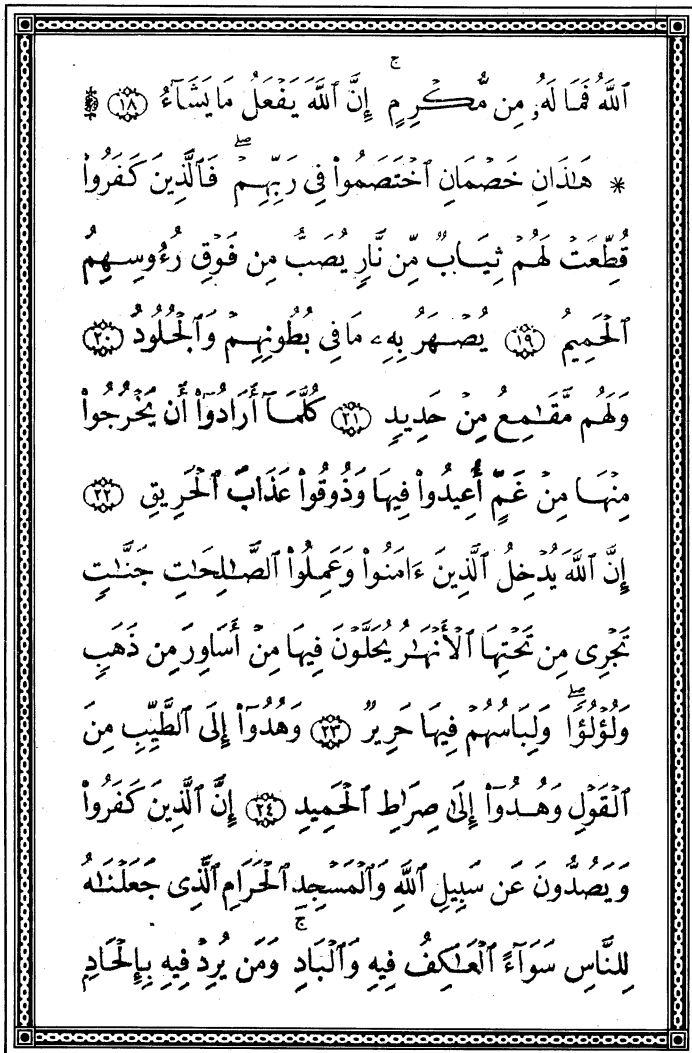 ٱللَّهُ فَمَا لَهُۥ مِن مُّكْرِمٍ ۚ إِنَّ ٱللَّهَ يَفْعَلُ مَا يَشَآءُ ۩ ﴿١٨﴾
* هَـٰذَانِ خَصْمَانِ ٱخْتَصَمُوا۟ فِى رَبِّهِمْ ۖ فَٱلَّذِينَ كَفَرُوا۟
قُطِّعَتْ لَهُمْ ثِيَابٌ مِّن نَّارٍ يُصَبُّ مِن فَوْقِ رُءُوسِهِمُ
ٱلْحَمِيمُ ﴿١٩﴾ يُصْهَرُ بِهِۦ مَا فِى بُطُونِهِمْ وَٱلْجُلُودُ ﴿٢٠﴾
وَلَهُم مَّقَـٰمِعُ مِنْ حَدِيدٍ ﴿٢١﴾ كُلَّمَآ أَرَادُوٓا۟ أَن يَخْرُجُوا۟
مِنْهَا مِنْ غَمٍّ أُعِيدُوا۟ فِيهَا وَذُوقُوا۟ عَذَابَ ٱلْحَرِيقِ ﴿٢٢﴾
إِنَّ ٱللَّهَ يُدْخِلُ ٱلَّذِينَ ءَامَنُوا۟ وَعَمِلُوا۟ ٱلصَّـٰلِحَـٰتِ جَنَّـٰتٍ
تَجْرِى مِن تَحْتِهَا ٱلْأَنْهَـٰرُ يُحَلَّوْنَ فِيهَا مِنْ أَسَاوِرَ مِن ذَهَبٍ
وَلُؤْلُؤًا ۖ وَلِبَاسُهُمْ فِيهَا حَرِيرٌ ﴿٢٣﴾ وَهُدُوٓا۟ إِلَى ٱلطَّيِّبِ مِنَ
ٱلْقَوْلِ وَهُدُوٓا۟ إِلَىٰ صِرَٰطِ ٱلْحَمِيدِ ﴿٢٤﴾ إِنَّ ٱلَّذِينَ كَفَرُوا۟
وَيَصُدُّونَ عَن سَبِيلِ ٱللَّهِ وَٱلْمَسْجِدِ ٱلْحَرَامِ ٱلَّذِى جَعَلْنَـٰهُ
لِلنَّاسِ سَوَآءً ٱلْعَـٰكِفُ فِيهِ وَٱلْبَادِ ۚ وَمَن يُرِدْ فِيهِ بِإِلْحَادٍۭ